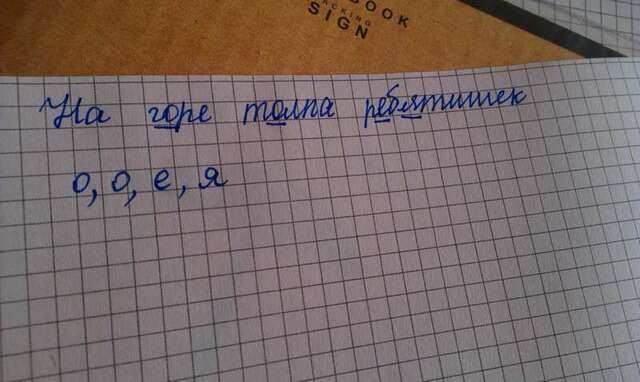 BOOK
PACKING
SIGN
На горе толпа ребятишек
о, о, е, я